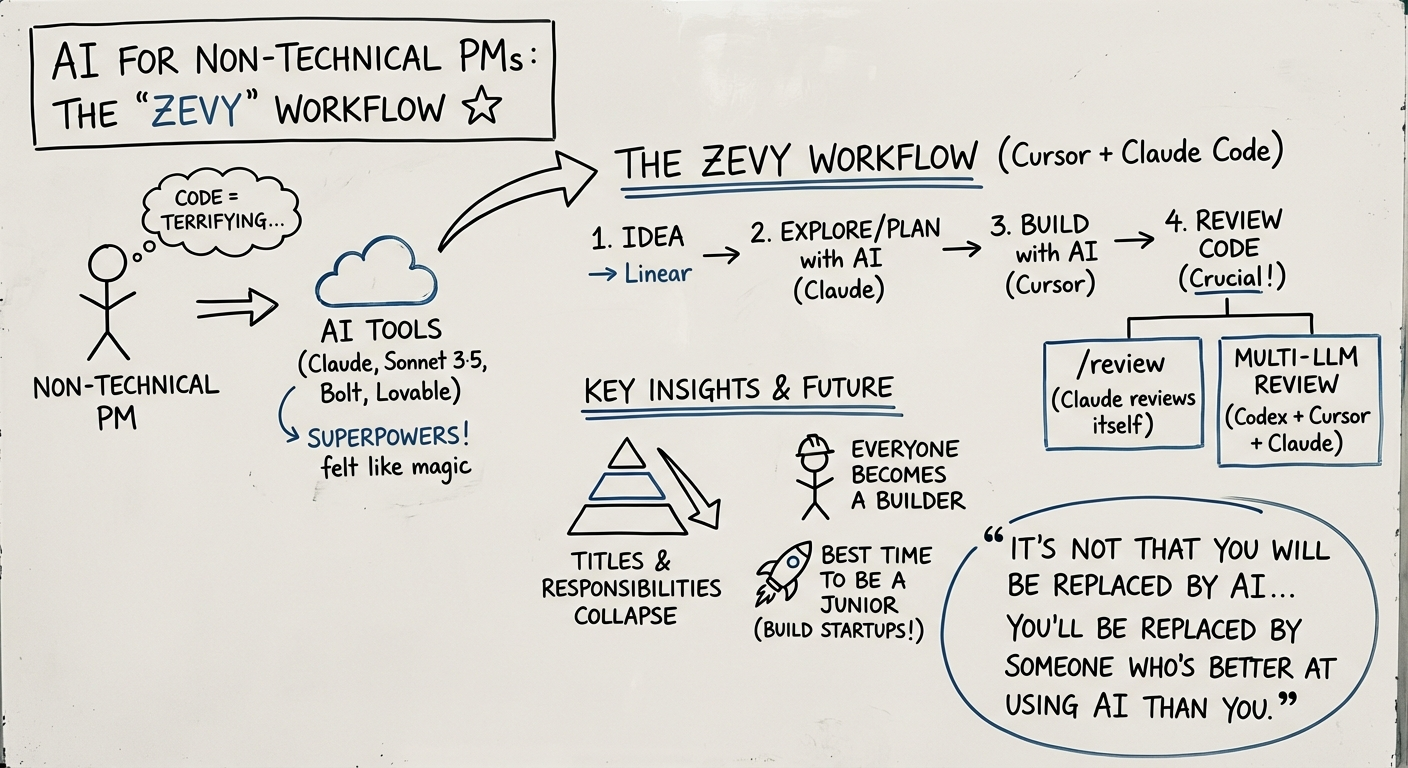 AI FOR NON-TECHNICAL PMs:
THE "ZEVY" WORKFLOW
CODE =
TERRIFYING...
NON-TECHNICAL
PM
AI TOOLS
(Claude, Sonnet 3.5,
Bolt, Lovable)
SUPERPOWERS!
felt like magic
THE ZEVY WORKFLOW (Cursor + Claude Code)
1. IDEA
→ Linear
2. EXPLORE/PLAN
with AI
(Claude)
3. BUILD
with AI
(Cursor)
4. REVIEW
CODE
(Crucial!)
/review
(Claude reviews
itself)
MULTI-LLM
REVIEW
(Codex + Cursor
+ Claude)
KEY INSIGHTS & FUTURE
TITLES &
RESPONSIBILITIES
COLLAPSE
EVERYONE
BECOMES
A BUILDER
BEST TIME
TO BE A
JUNIOR
(BUILD STARTUPS!)
"IT'S NOT THAT YOU WILL
BE REPLACED BY AI...
YOU'LL BE REPLACED BY
SOMEONE WHO'S BETTER AT
USING AI THAN YOU."